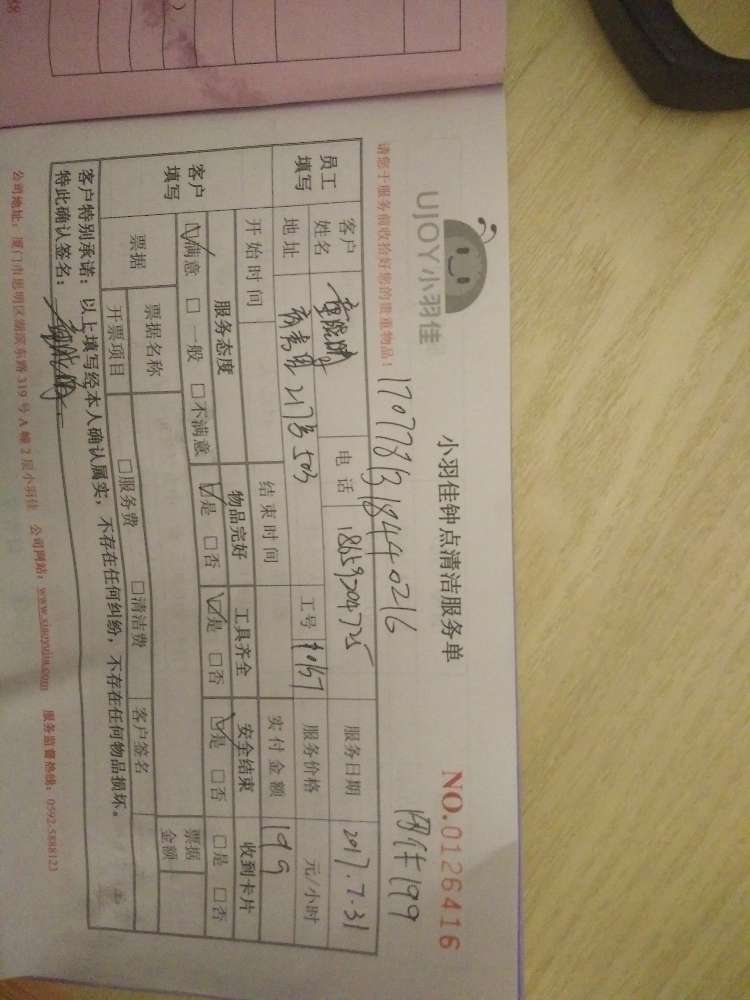 UJOY小羽佳
小羽佳钟点清洁服务单
NO.0126416
请您于服务前收拾好您的贵重物品！
团体199
员工填写
客户姓名
电话 18659204725
服务日期 2017.7.31
地址
503
工号
服务价格 元/小时
开始时间
结束时间
实付金额 199
客户填写
服务态度 物品完好 工具齐全 安全结束 收到卡片
☑满意 □一般 □不满意 ☑是 □否 ☑是 □否 ☑是 □否 □是 □否
票据
票据名称
票据金额
开票项目 □服务费 □清洁费 客户签名
客户特别承诺：以上填写经本人确认属实，不存在任何纠纷，不存在任何物品损坏。
特此确认签名：
公司地址：厦门市思明区湖滨东路319号A幢2层小羽佳 公司网站：www.xiaoyujia.com 服务监督热线：0592-5888123